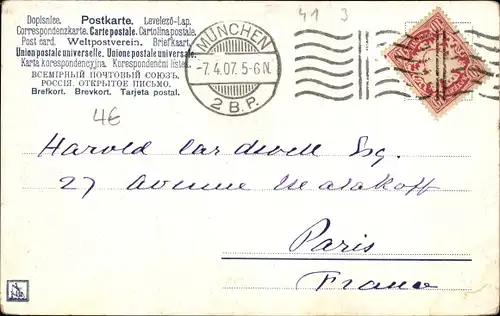 Dopisnice. Postkarte. Levelező-Lap.
Correspondenzkarte. Carte postale. Cartolina postale.
Post card. Weltpostverein. Briefkaart.
Union postale universelle. Unione postale universale.
Karta korespondencyjna. Korespondenční lístek.
ВСЕМІРНЫЙ ПОЧТОВЫЙ СОЮЗЪ.
РОССІЯ. ОТКРЫТОЕ ПИСЬМО.
Brefkort. Brevkort. Tarjeta postal.
MÜNCHEN
-7.4.07. 5-6 N.
2 B.P.
41 3
4€
Harold Cardwell Esq.
27 Avenue Malakoff
Paris
France